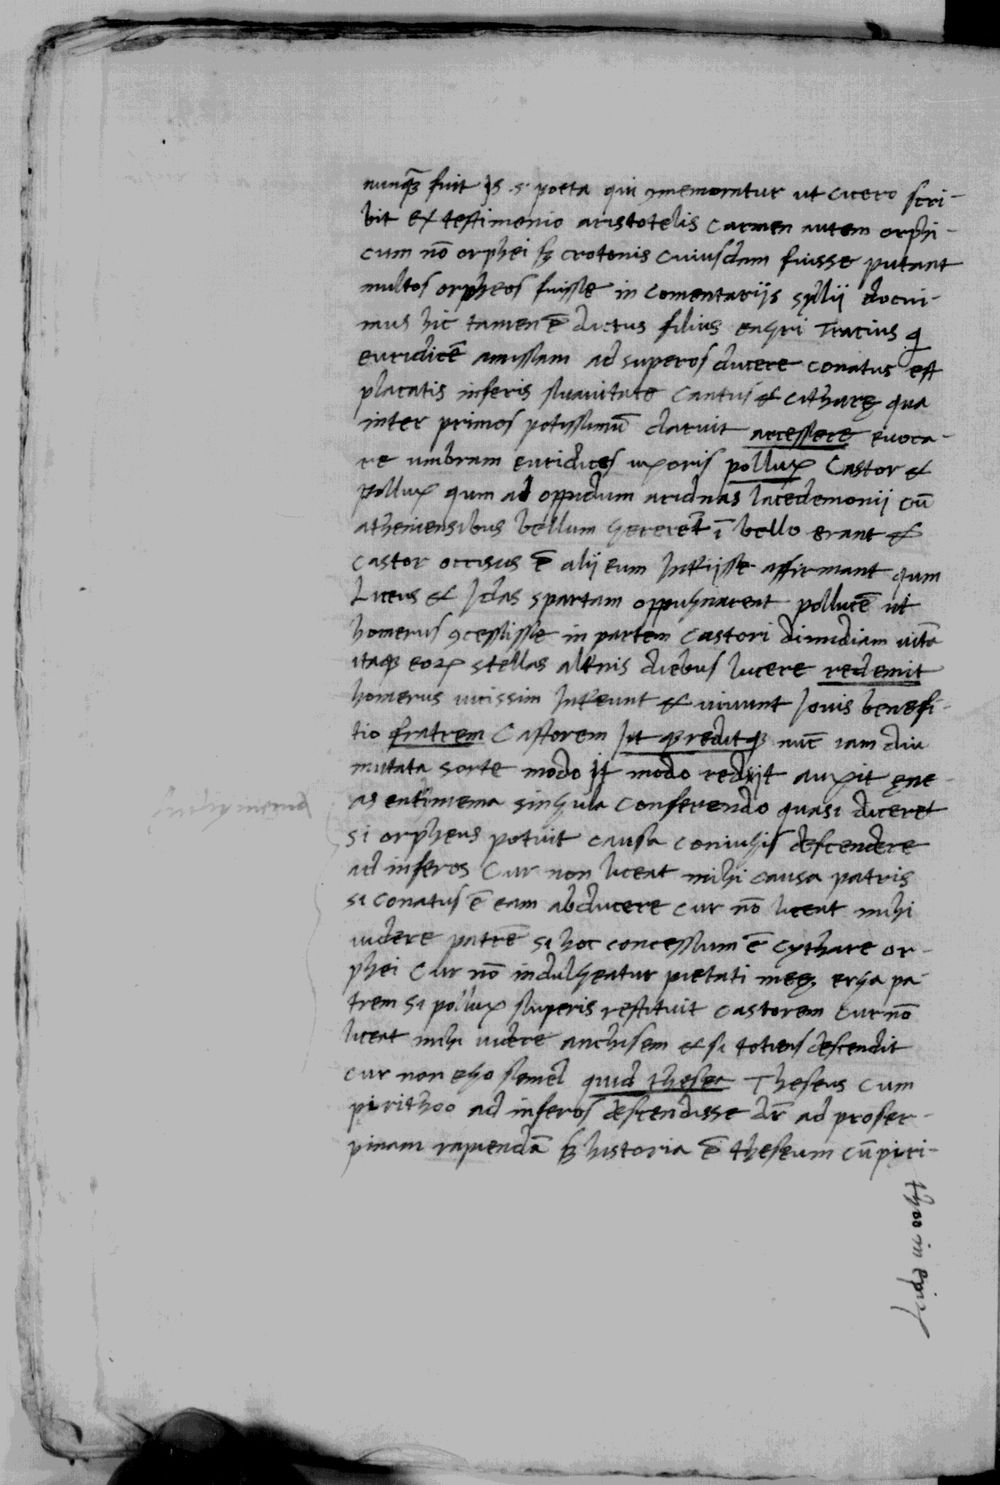 nunq̃ꝫ fuit is .s. poeta qui ꝯmemoratur ut cicero scri-
bit ex testimonio aristotelis carmen autem orphi-
cum nõ orphei sꝫ crotonis cuiusdam fuisse putant
multos orpheos fuisse in comentarijs syllij docui-
mus hic tamen ẽ dictus filius eagri Tracius q
euridicẽ amissam ad superos ducere conatus est
placatis inferis suauitate cantus & citharę qua
inter primos potissimũ claruit arcessere euoca-
re umbram euridices uxoris pollux Castor &
pollux qum ad oppidum aridnas lacedemonij cũ
atheniensibus bellum gererẽt ĩ bello erant &
castor occisus ẽ alij eum Interijsse affirmant qum
Liceus & Idas spartam oppugnarent pollucẽ ut
homerus ꝯcessisse in partem castori dimidiam uitã
itaqꝫ eoꝝ stellas alt̃nis diebus lucere redemit
homerus uicissim Intereunt & uiuunt Iouis benefi-
tio fratrem Castorem Itqꝫ reditqꝫ nũc iam diu
mutata sorte modo it modo redijt auxit ęne-
as entimema singula conferendo quasi diceret
si orpheus potuit causa coniugis descendere
ad inferos Cur non liceat mihi causa patris
si conatus ẽ eam abducere cur nõ liceat mihi
uidere patrẽ si hoc concessum ẽ cythare or-
phei Cur nõ indulgeatur pietati meę erga pa-
trem si pollux superis restituit castorem Cur nõ
liceat mihi uidere anchisem & si totiens descendit
cur non ego semel quid thesea Theseus cum
pirithoo ad inferos descendisse dr̃ ad proser-
pinam rapiendã sꝫ historia ẽ theseum cũ piri-
thoo in epir